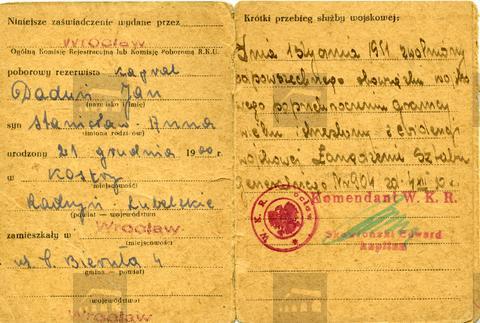 Niniejsze zaświadczenie wydane przez
Wrocław
Ogólną Komisję Rejestracyjną lub Komisję Poborową R.K.U.
poborowy rezerwista kapral
Daduń Jan
(nazwisko i imię)
syn Stanisław Anna
(imiona rodziców)
urodzony 21 grudnia 1900 r.
w
(miejscowość)
Radzyń Lubelskie
(powiat — województwo)
Wrocław
zamieszkały w
(miejscowość)
ul. B. Bieruta 4
(gmina — powiat)
(województwo)
Wrocław
Krótki przebieg służby wojskowej:
Dnia 1 stycznia 1951 zwolniony
od powszechnego obowiązku wojsko
wego po przekroczeniu granicy
wieku i skreślony z ewidencji
wojskowej Zarządzenie Sztabu
Generalnego Nr 904
Komendant W. K. R.
W. K. R. Wrocław
Edward
kapitan